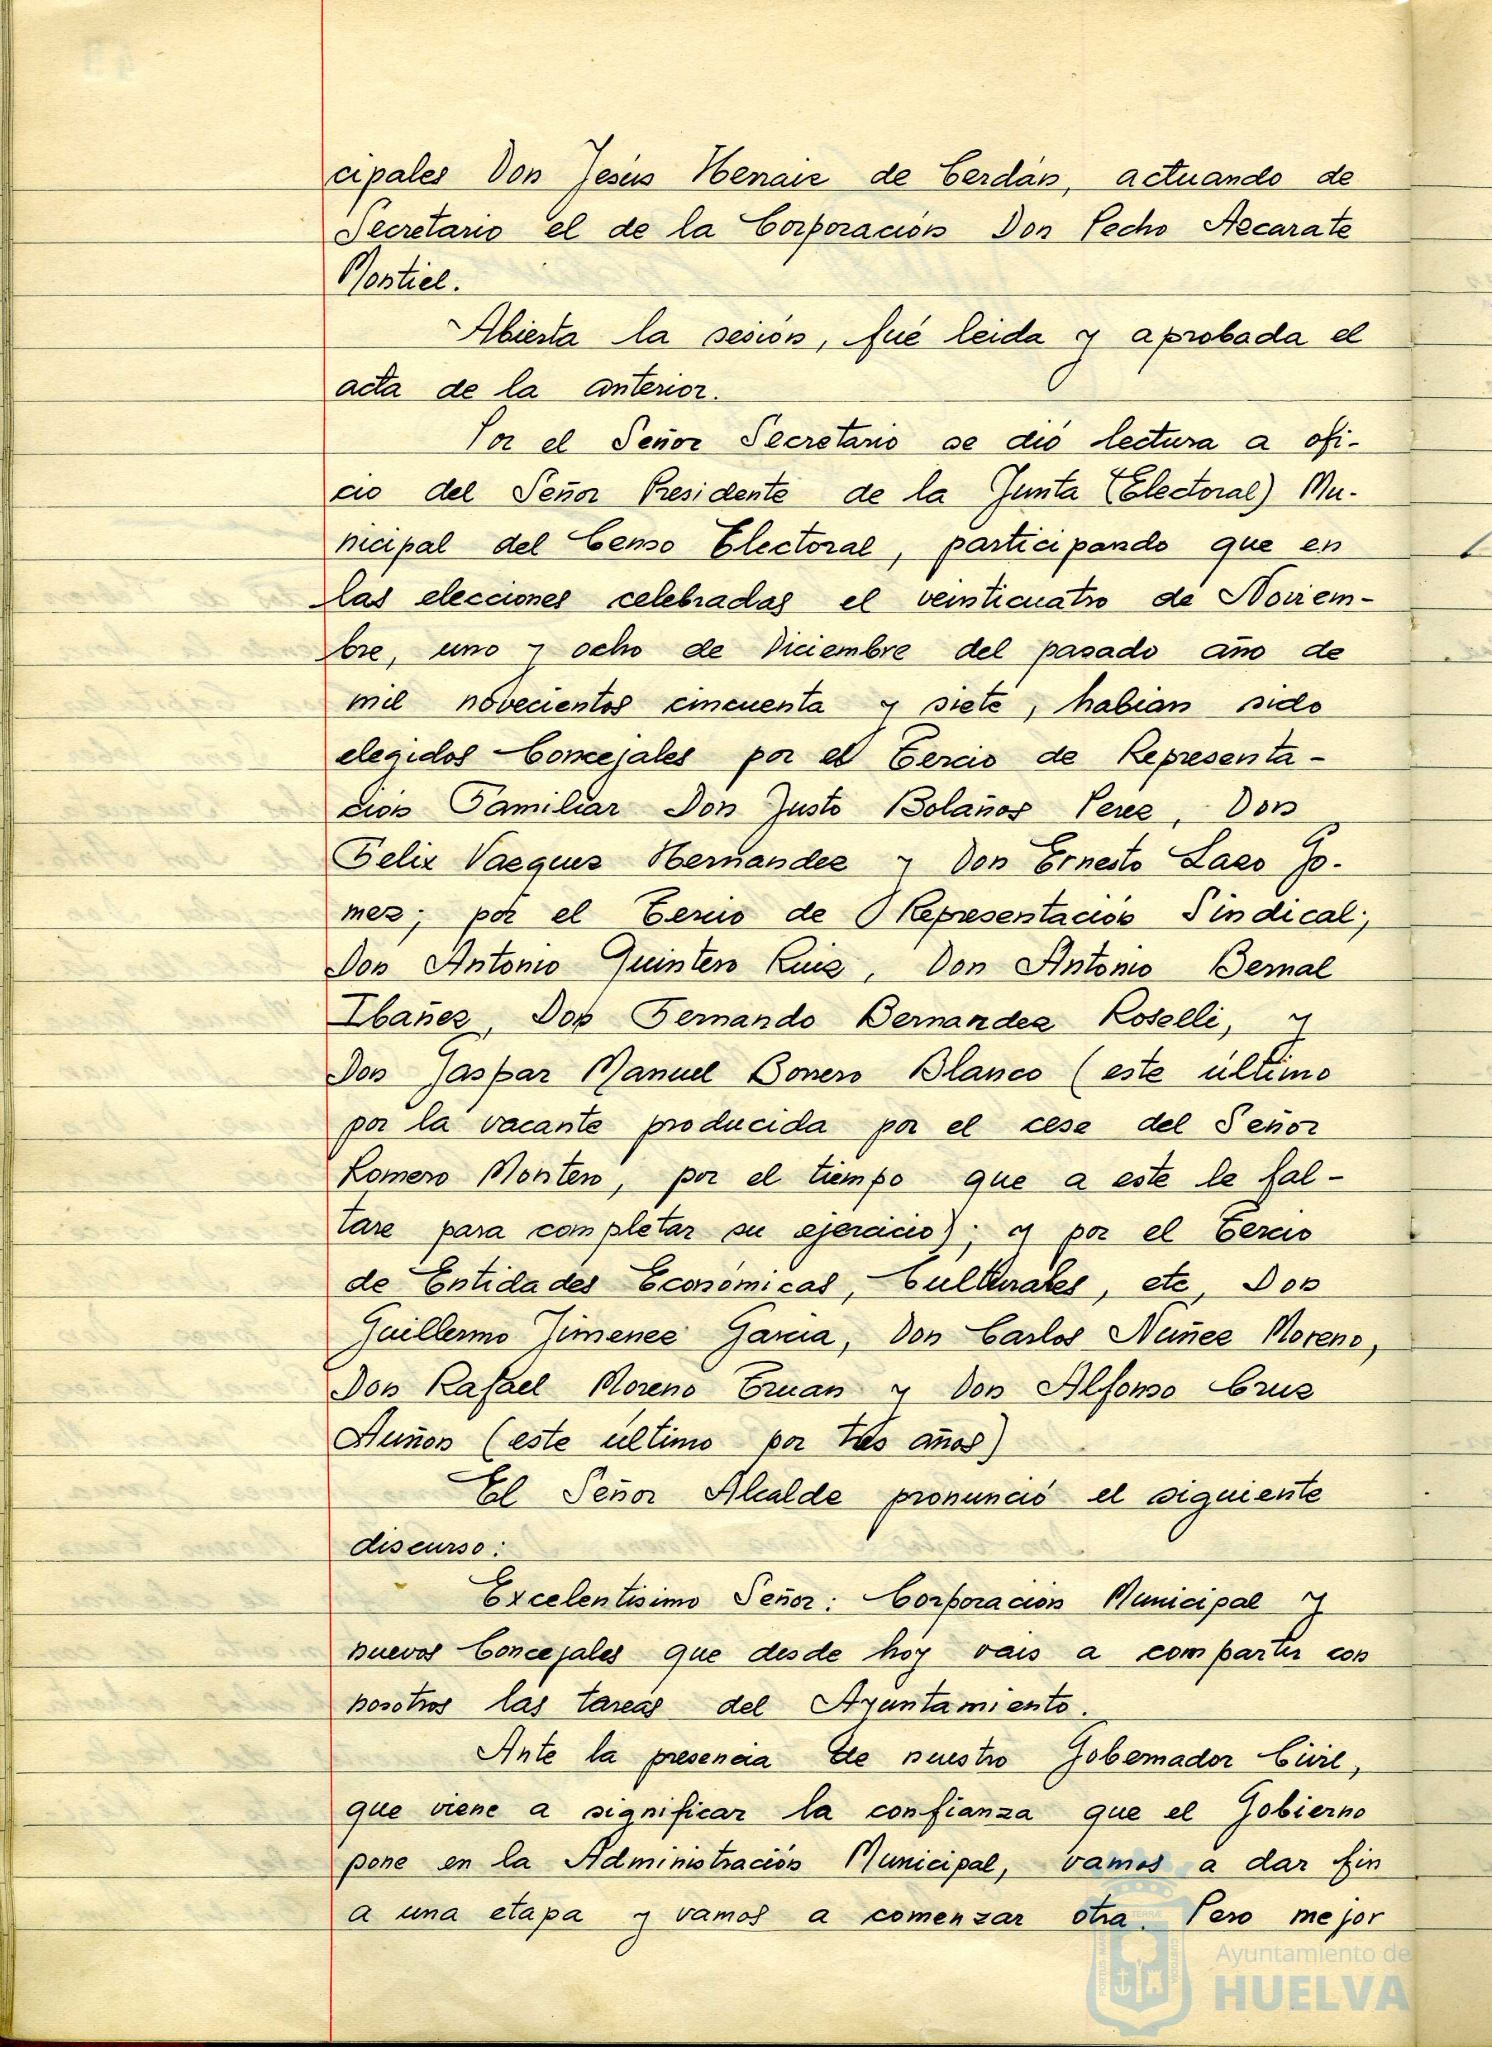 cipales Don Jesús Henaiz de Cerdán, actuando de
Secretario el de la Corporación Don Pecho Azcarate
Montiel.
Abierta la sesión, fué leida y aprobada el
acta de la anterior.
Por el Señor Secretario se dió lectura a ofi-
cio del Señor Presidente de la Junta (Electoral) Mu-
nicipal del Censo Electoral, participando que en
las elecciones celebradas el veinticuatro de Noviem-
bre, uno y ocho de Diciembre del pasado año de
mil novecientos cincuenta y siete, habian sido
elegidos Concejales por el Tercio de Representa-
ción Familiar Don Justo Bolaños Perez, Don
Felix Vazquez Hernandez y Don Ernesto Lazo Go-
mez; por el Tercio de Representación Sindical;
Don Antonio Quintero Ruiz, Don Antonio Bernal
Ibañez, Don Fernando Bernandez Roselli, y
Don Gaspar Manuel Borrero Blanco (este último
por la vacante producida por el cese del Señor
Romero Montero, por el tiempo que a este le fal-
tare para completar su ejercicio); y por el Tercio
de Entidades Económicas, Culturales, etc, Don
Guillermo Jimenez Garcia, Don Carlos Nuñez Moreno,
Don Rafael Moreno Truan y Don Alfonso Cruz
Auñon (este último por tres años)
El Señor Alcalde pronunció el siguiente
discurso:
Excelentisimo Señor: Corporación Municipal y
nuevos Concejales que desde hoy vais a compartir con
nosotros las tareas del Ayuntamiento.
Ante la presencia de nuestro Gobernador Civil,
que viene a significar la confianza que el Gobierno
pone en la Administración Municipal, vamos a dar fin
a una etapa y vamos a comenzar otra. Pero mejor
Ayuntamiento de
HUELVA